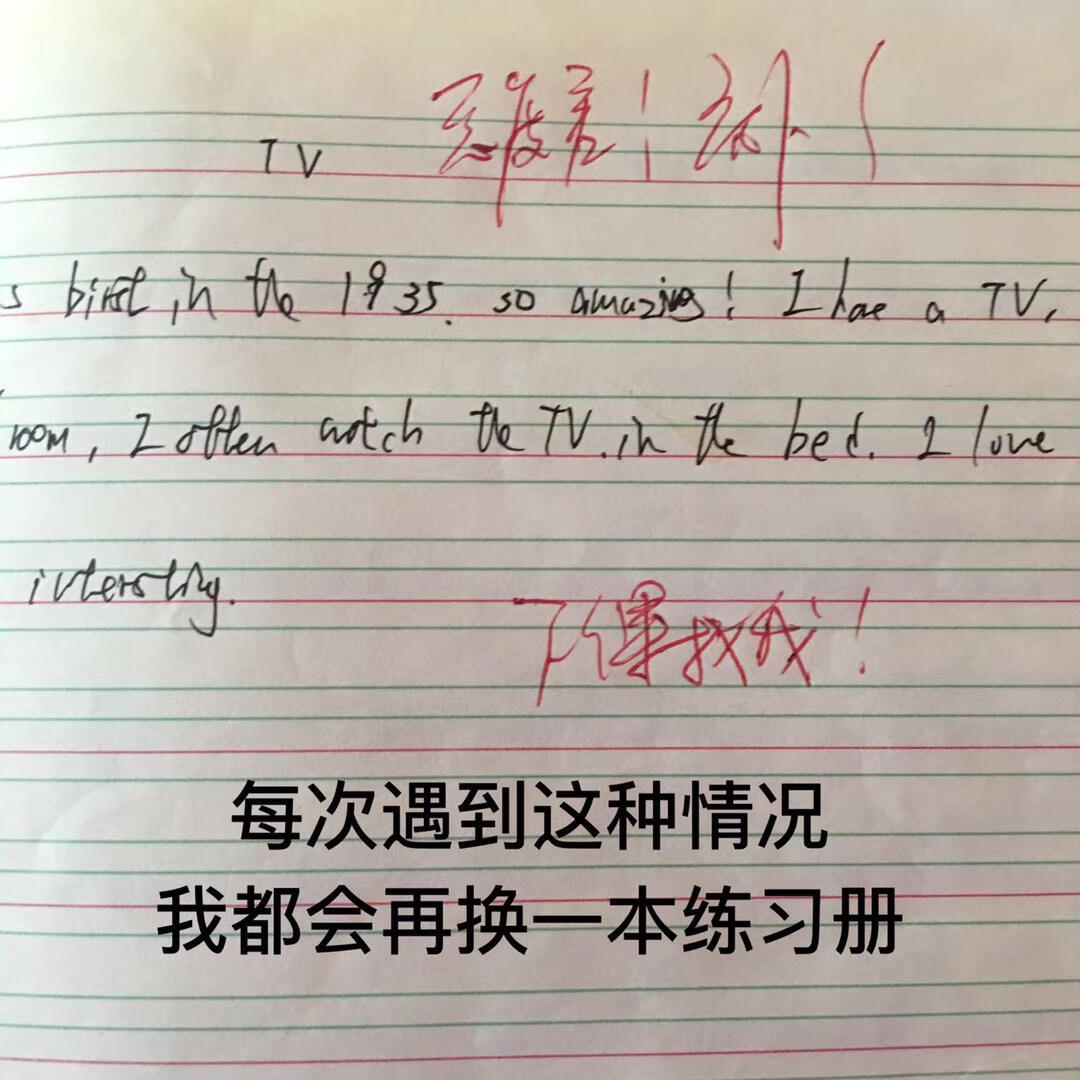 TV
态度差！
s birst in the 1935. so amazing! I have a TV,
room, I often watch the TV. in the bed. I love
intersting.
下课找我！
每次遇到这种情况
我都会再换一本练习册